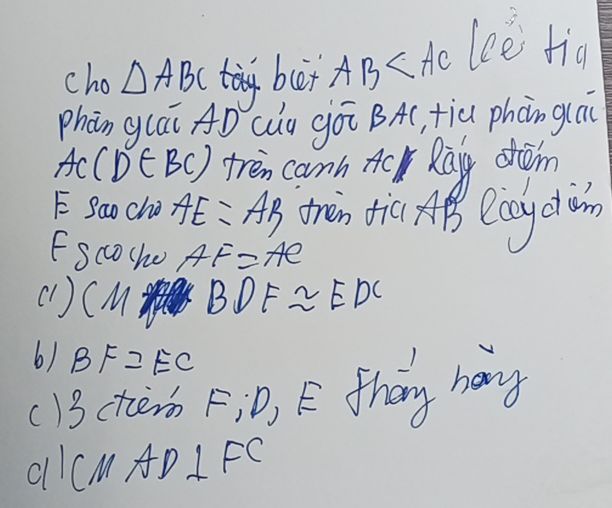 cho △ABC biết AB < AC kẻ tia
phân giác AD của góc BAC, tia phân giác
AC (D ∈ BC) trên cạnh AC lấy điểm
E sao cho AE = AB trên tia AB lấy điểm
F sao cho AF = AC
a) CM BDF ≈ EDC
b) BF = EC
c) 3 điểm F, D, E thẳng hàng
d) CM AD ⊥ FC